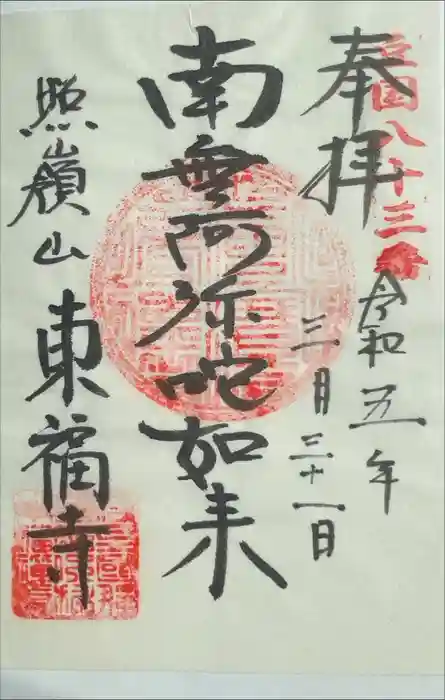 奉拝
国八十三番
令和五年
三月三十一日
南無阿弥陀如来
照嶺山 東福寺